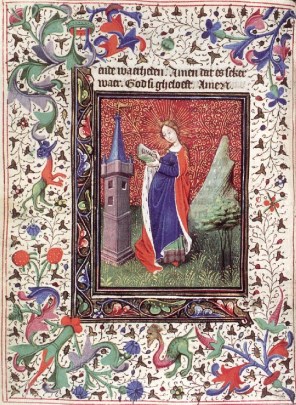 ende waerheden. Amen dat es seker
waer. God si gheloeft. Amen.